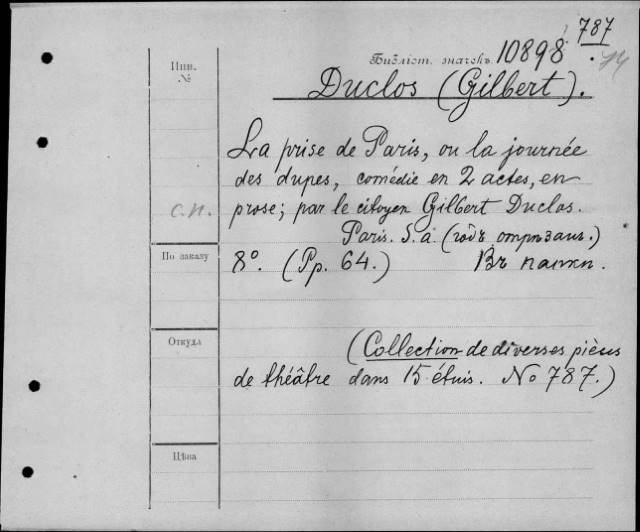 787
Инв.
№
Библіот. значекъ 10898
Duclos (Gilbert).
La prise de Paris, ou la journée
des dupes, comédie en 2 actes, en
prose; par le citoyen Gilbert Duclos.
с.п.
Paris. S. a. (годъ отрѣзанъ.)
По заказу
8°. (Pp. 64.) Въ папки.
Откуда
(Collection de diverses pièces
de théâtre dans 15 étuis. No 787.)
Цѣна